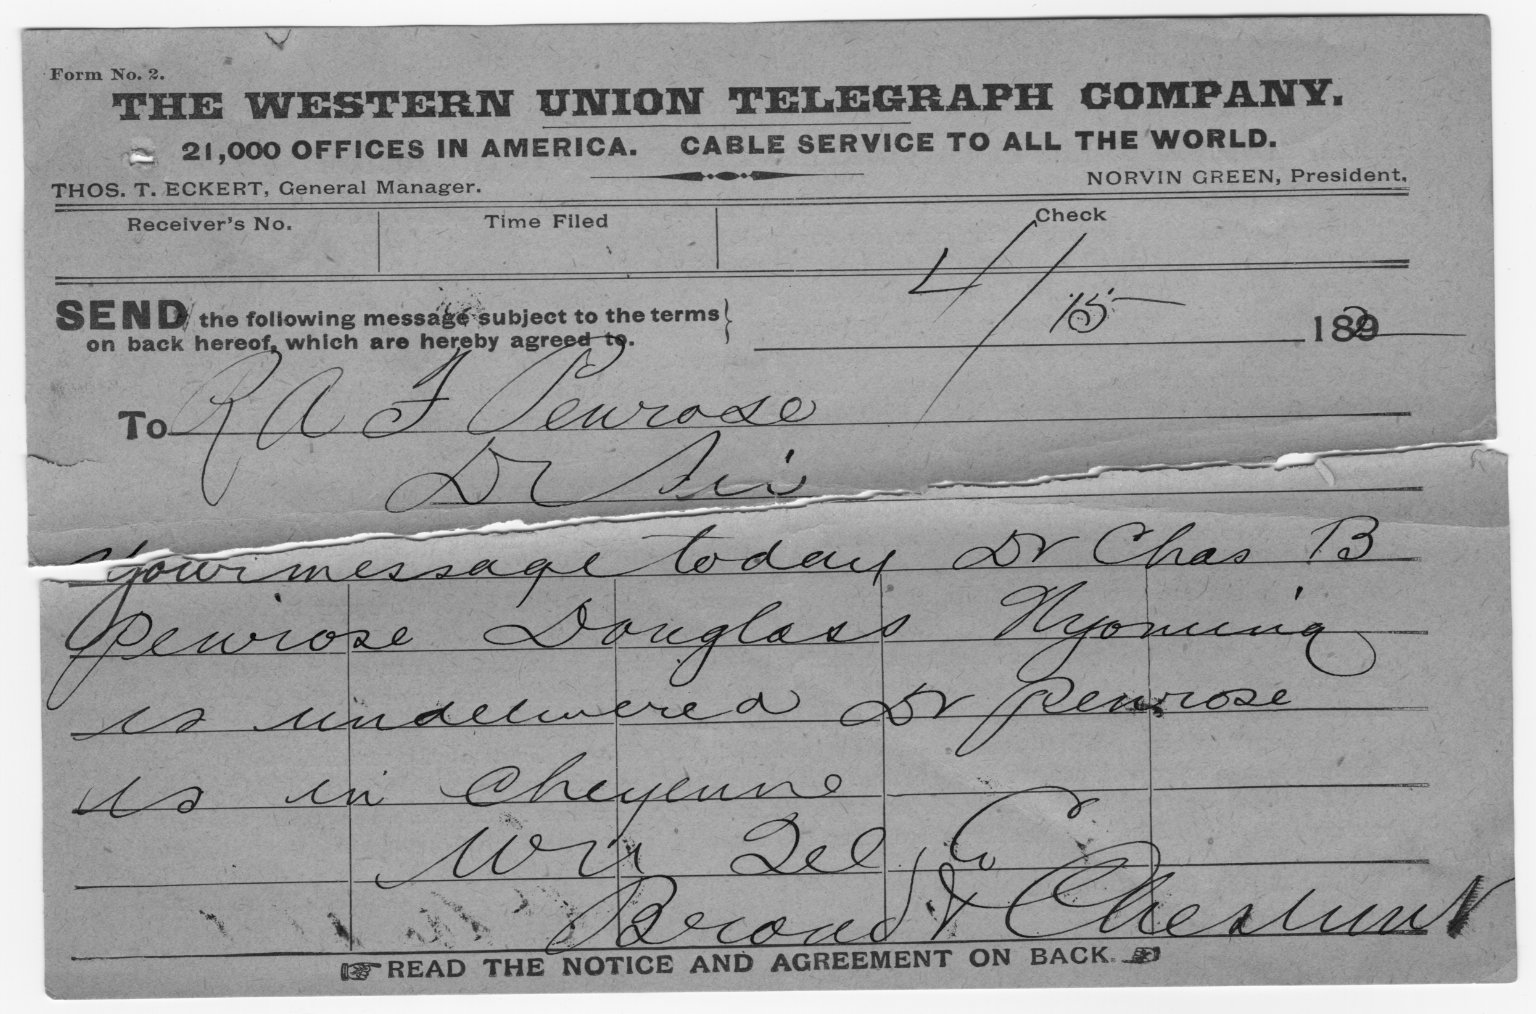 Form No. 2.
THE WESTERN UNION TELEGRAPH COMPANY.
21,000 OFFICES IN AMERICA. CABLE SERVICE TO ALL THE WORLD.
THOS. T. ECKERT, General Manager. NORVIN GREEN, President.
Receiver's No. Time Filed Check
SEND the following message subject to the terms
on back hereof, which are hereby agreed to.
4/15 1892
To R A F Penrose
Dr Sir
Your message today Dr Chas B
Penrose Douglass Wyoming
is undelivered Dr Penrose
is in Cheyenne
W U Tel Co
Broad & Chestnut
READ THE NOTICE AND AGREEMENT ON BACK.